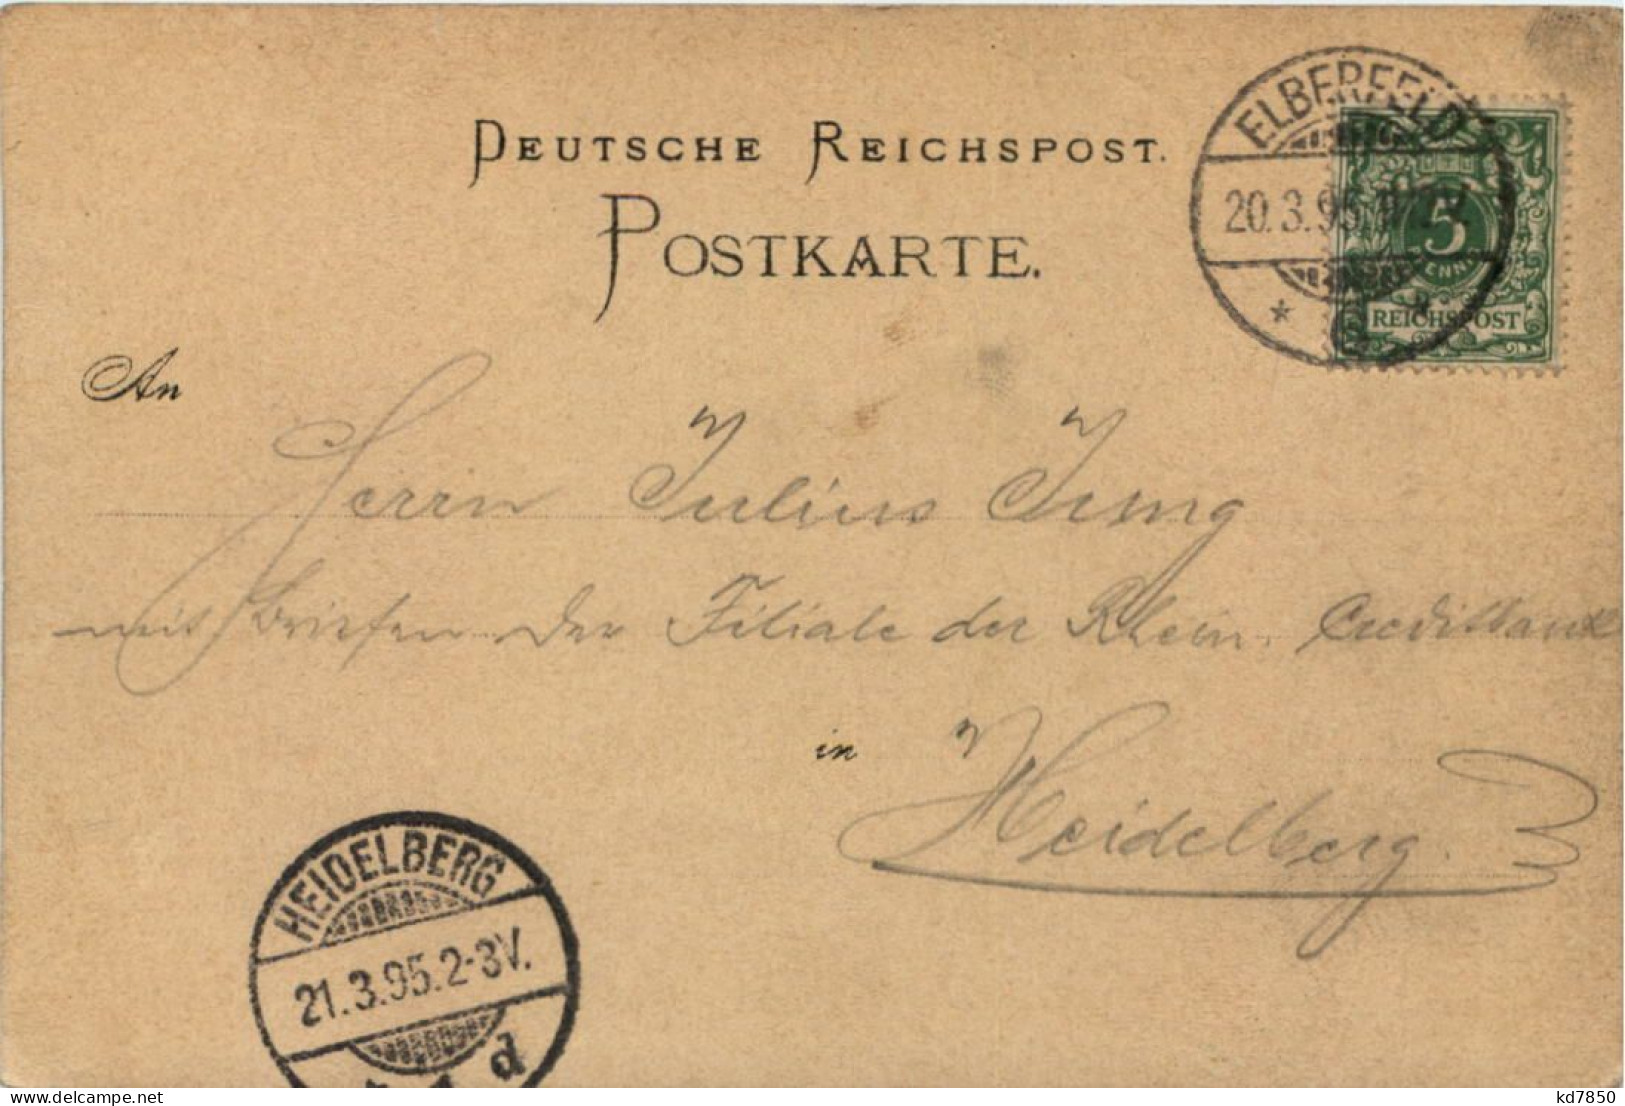 DEUTSCHE REICHSPOST.
POSTKARTE.
ELBERFELD
20.3.95.
5
PFENNIG
REICHSPOST
An
Herrn Julius Jung
mit Briefen der Filiale der Rhein. Creditbank
in Heidelberg.
HEIDELBERG
21.3.95.2-3V.
d
kd7850